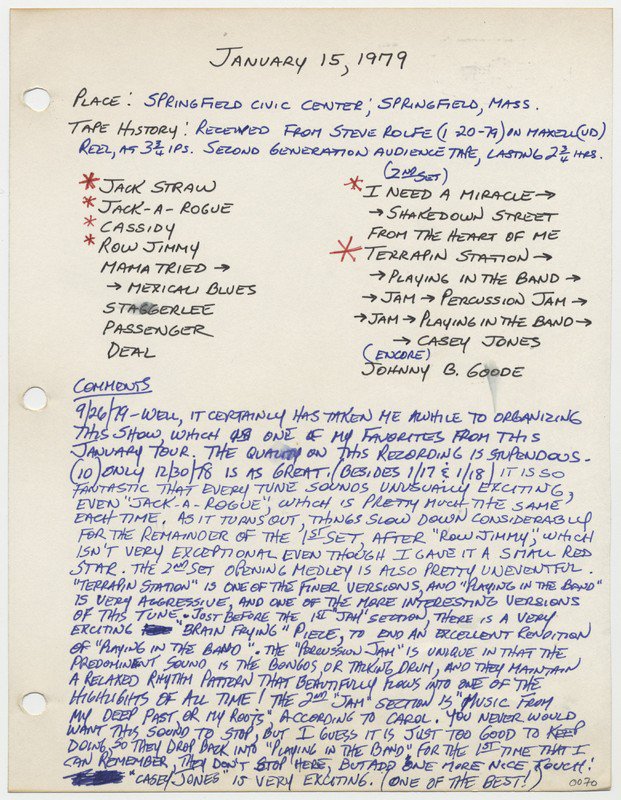 January 15, 1979
Place: Springfield Civic Center, Springfield, Mass.
Tape History: Received from Steve Rolfe (1-20-79) on Maxell (UD)
Reel, at 3 3/4 ips. Second generation audience tape, lasting 2 3/4 hrs.
* Jack Straw
* Jack-A-Rogue
* Cassidy
* Row Jimmy
Mama Tried →
→ Mexicali Blues
Staggerlee
Passenger
Deal
(2nd Set)
* I Need A Miracle →
→ Shakedown Street
From The Heart Of Me
* Terrapin Station →
→ Playing In The Band →
→ Jam → Percussion Jam →
→ Jam → Playing In The Band →
→ Casey Jones
(Encore)
Johnny B. Goode
Comments
9/26/79 - Well, it certainly has taken me awhile to organizing
this show, which is one of my favorites from this
January tour. The quality on this recording is stupendous -
(10) only 12/30/78 is as great! (Besides 1/17 & 1/18) It is so
fantastic that every tune sounds unusually exciting,
even "Jack-A-Rogue", which is pretty much the same
each time. As it turns out, things slow down considerably
for the remainder of the 1st set, after "Row Jimmy", which
isn't very exceptional even though I gave it a small red
star. The 2nd set opening medley is also pretty uneventful.
"Terrapin Station" is one of the finer versions, and "Playing in the Band"
is very aggressive, and one of the more interesting versions
of this tune. Just before the 1st "Jam" section, there is a very
exciting "brain frying" piece, to end an excellent rendition
of "Playing in the Band". The "Percussion Jam" is unique in that the
predominent sound is the bongos, or talking drum, and they maintain
a relaxed rhythm pattern that beautifully flows into one of the
highlights of all time! The 2nd "Jam" section is "music from
my deep past, or my roots", according to Carol. You never would
want this sound to stop, but I guess it is just too good to keep
doing, so they drop back into "Playing in the Band" for the 1st time that I
can remember, they don't stop here, but add one more nice touch!
"Casey Jones" is very exciting. (One of the best!)
0070